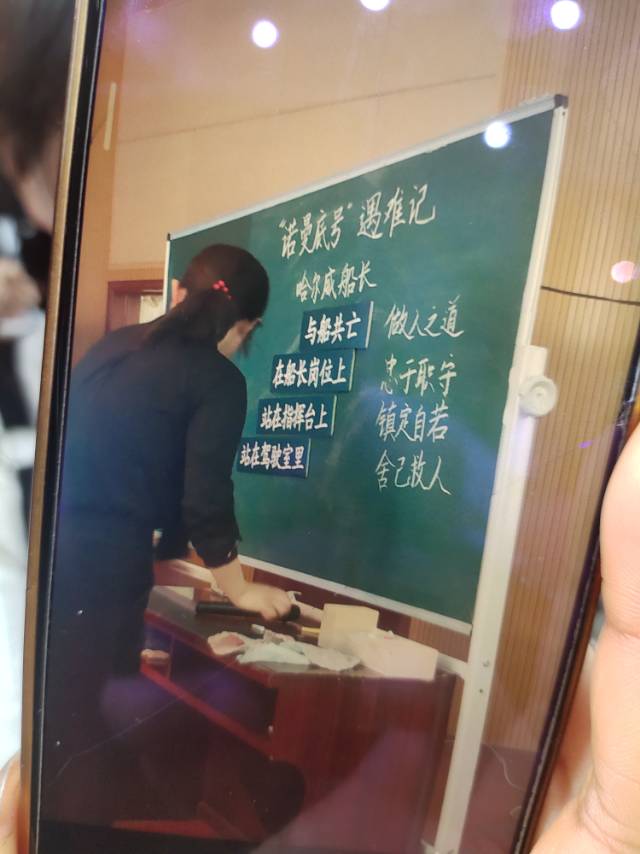 “诺曼底号”遇难记
哈尔威船长
与船共亡 做人之道
在船长岗位上 忠于职守
站在指挥台上 镇定自若
站在驾驶室里 舍己救人